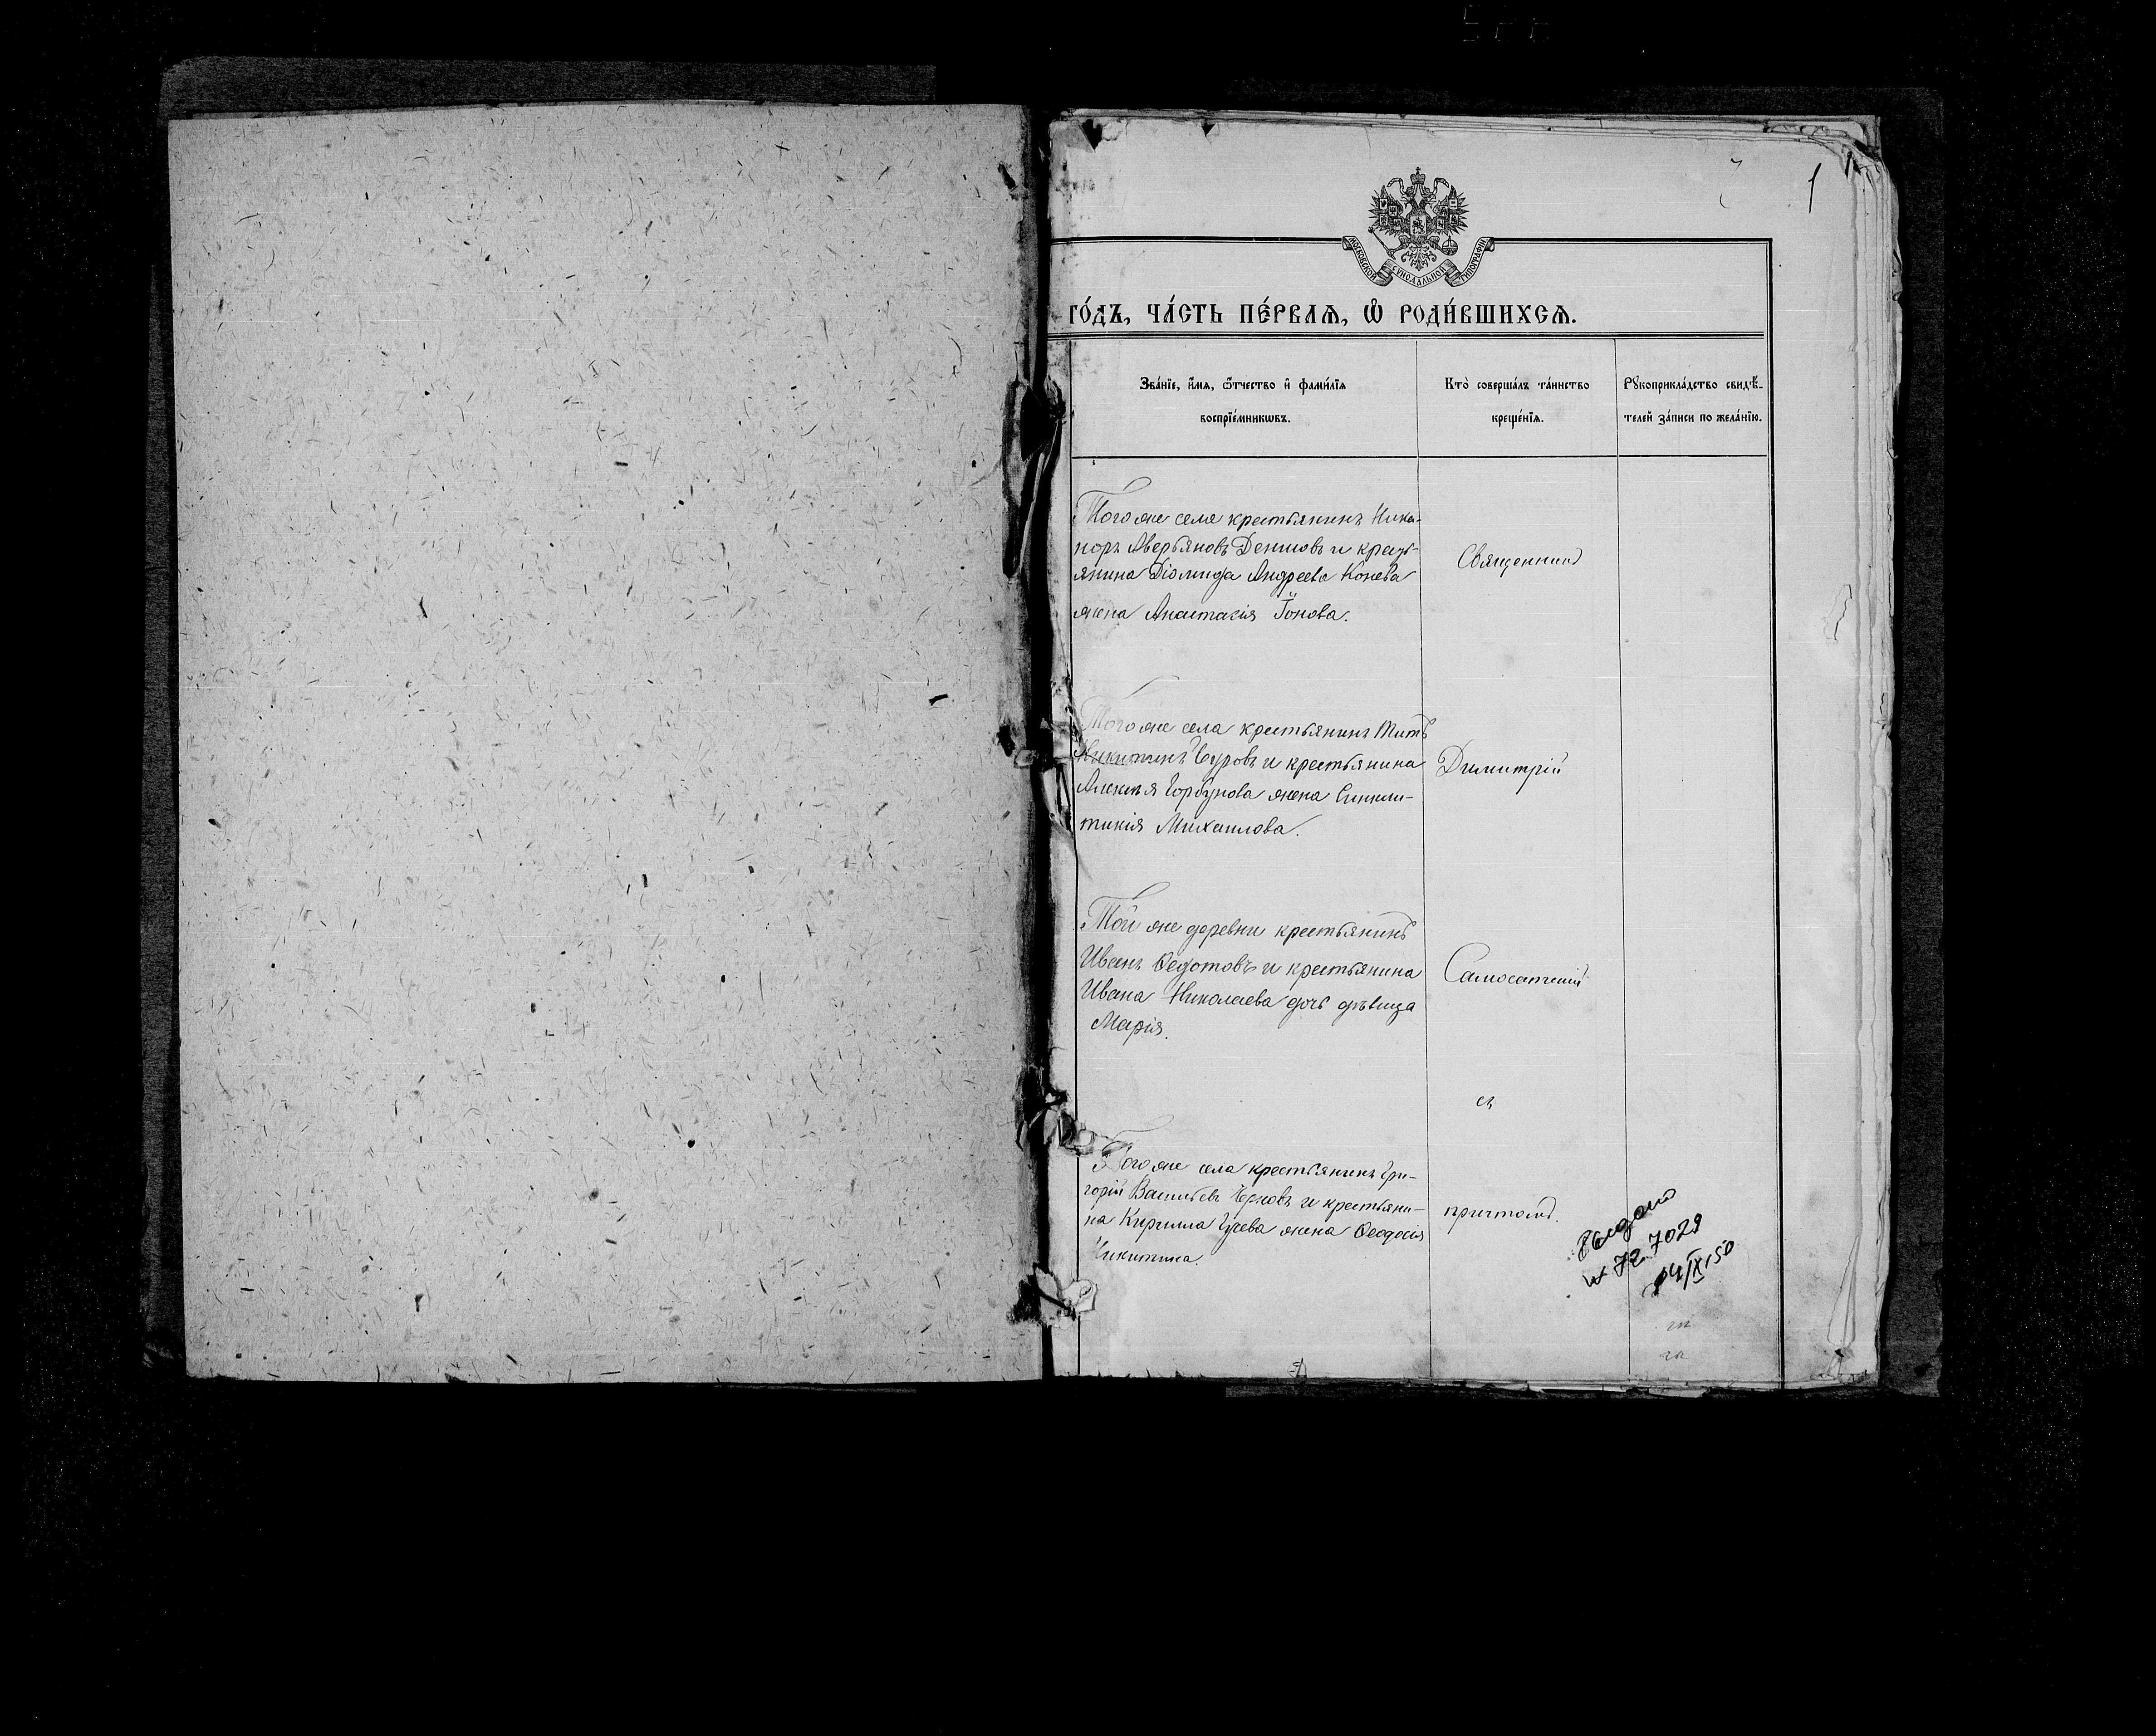 1
МОСКОВСКОЙ СѴНОДАЛЬНОЙ ТИПОГРАФІИ
ГО́ДЪ, ЧА́СТЬ ПЕ́РВАѦ, Ѽ РОДИ́ВШИХСѦ.
Зва́нїе, и҆́мѧ, ѻ҆́тчество и҆ фами́лїѧ
воспрїе́мникѡвъ.
Кто̀ соверша́лъ та́инство
креще́нїѧ.
Рꙋкоприкла́дство свидѣ́-
телей за́писи по жела́нїю.
Того же села крестьянинъ Ника-
норъ Аверьяновъ Денисовъ и кресть-
янина Діомида Андреева Конева
жена Анастасія Іонова.
Священникъ
Того же села крестьянинъ Титъ
Никитинъ Буровъ и крестьянина
Алексѣя Горбунова жена Синкли-
тикія Михаилова.
Димитрій
Той же деревни крестьянинъ
Иванъ Ѳедотовъ и крестьянина
Ивана Николаева дочь дѣвица
Марія.
Самосатскій
съ
Того же села крестьянинъ Гри-
горій Васильевъ Черновъ и крестьяни-
на Кирилла Гуева жена Ѳеодосія
Никитина.
причтомъ.
Выдано
7029
IX 50